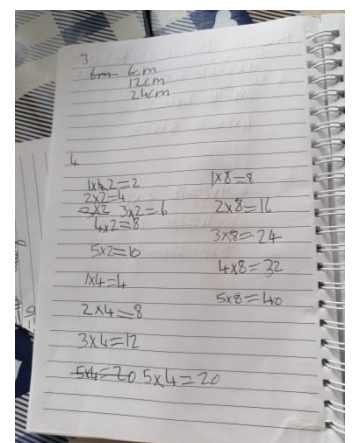 3
6m 6cm
12cm
24cm
4
1x2=2
2x2=4
2x2 3x2=6
4x2=8
5x2=10
1x4=4
2x4=8
3x4=12
5x4=20 5x4=20
1x8=8
2x8=16
3x8=24
4x8=32
5x8=40